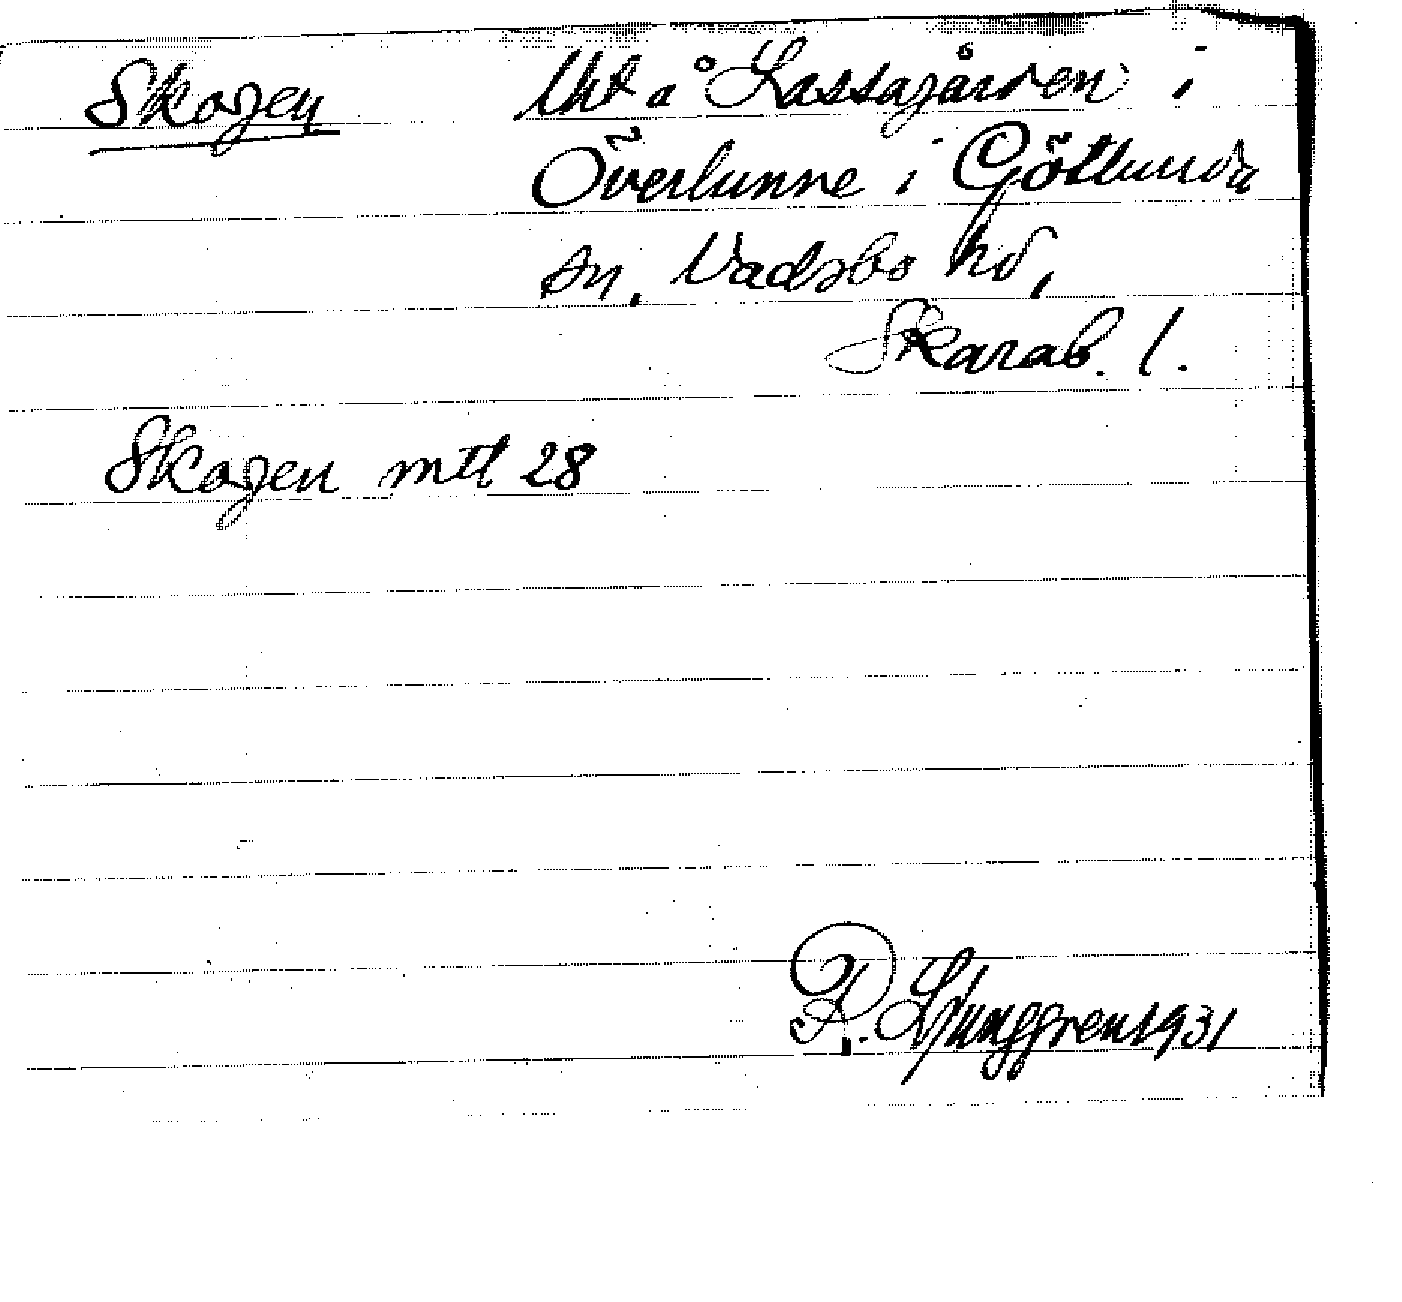 Skogen Uht å Lassagården i
Överlunne i Götlunda
sn, Vadsbo hd,
Skarab. l.
Skogen mtt 28
R. Ljunggren 1931